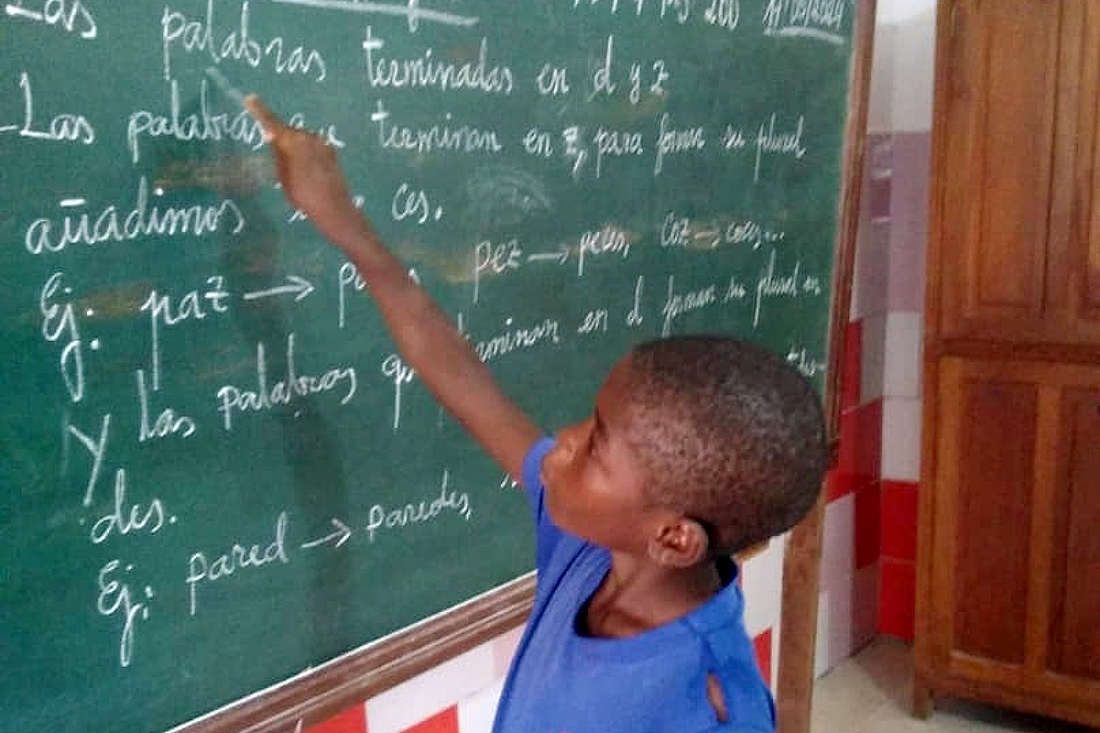 Las palabras terminadas en d y z
-Las palabras que terminan en z, para forman su plural
añadimos ces.
Ej: paz → pez → peces, coz → coces...
Y las palabras terminan en d forman su plural en
des.
Ej: pared → paredes,